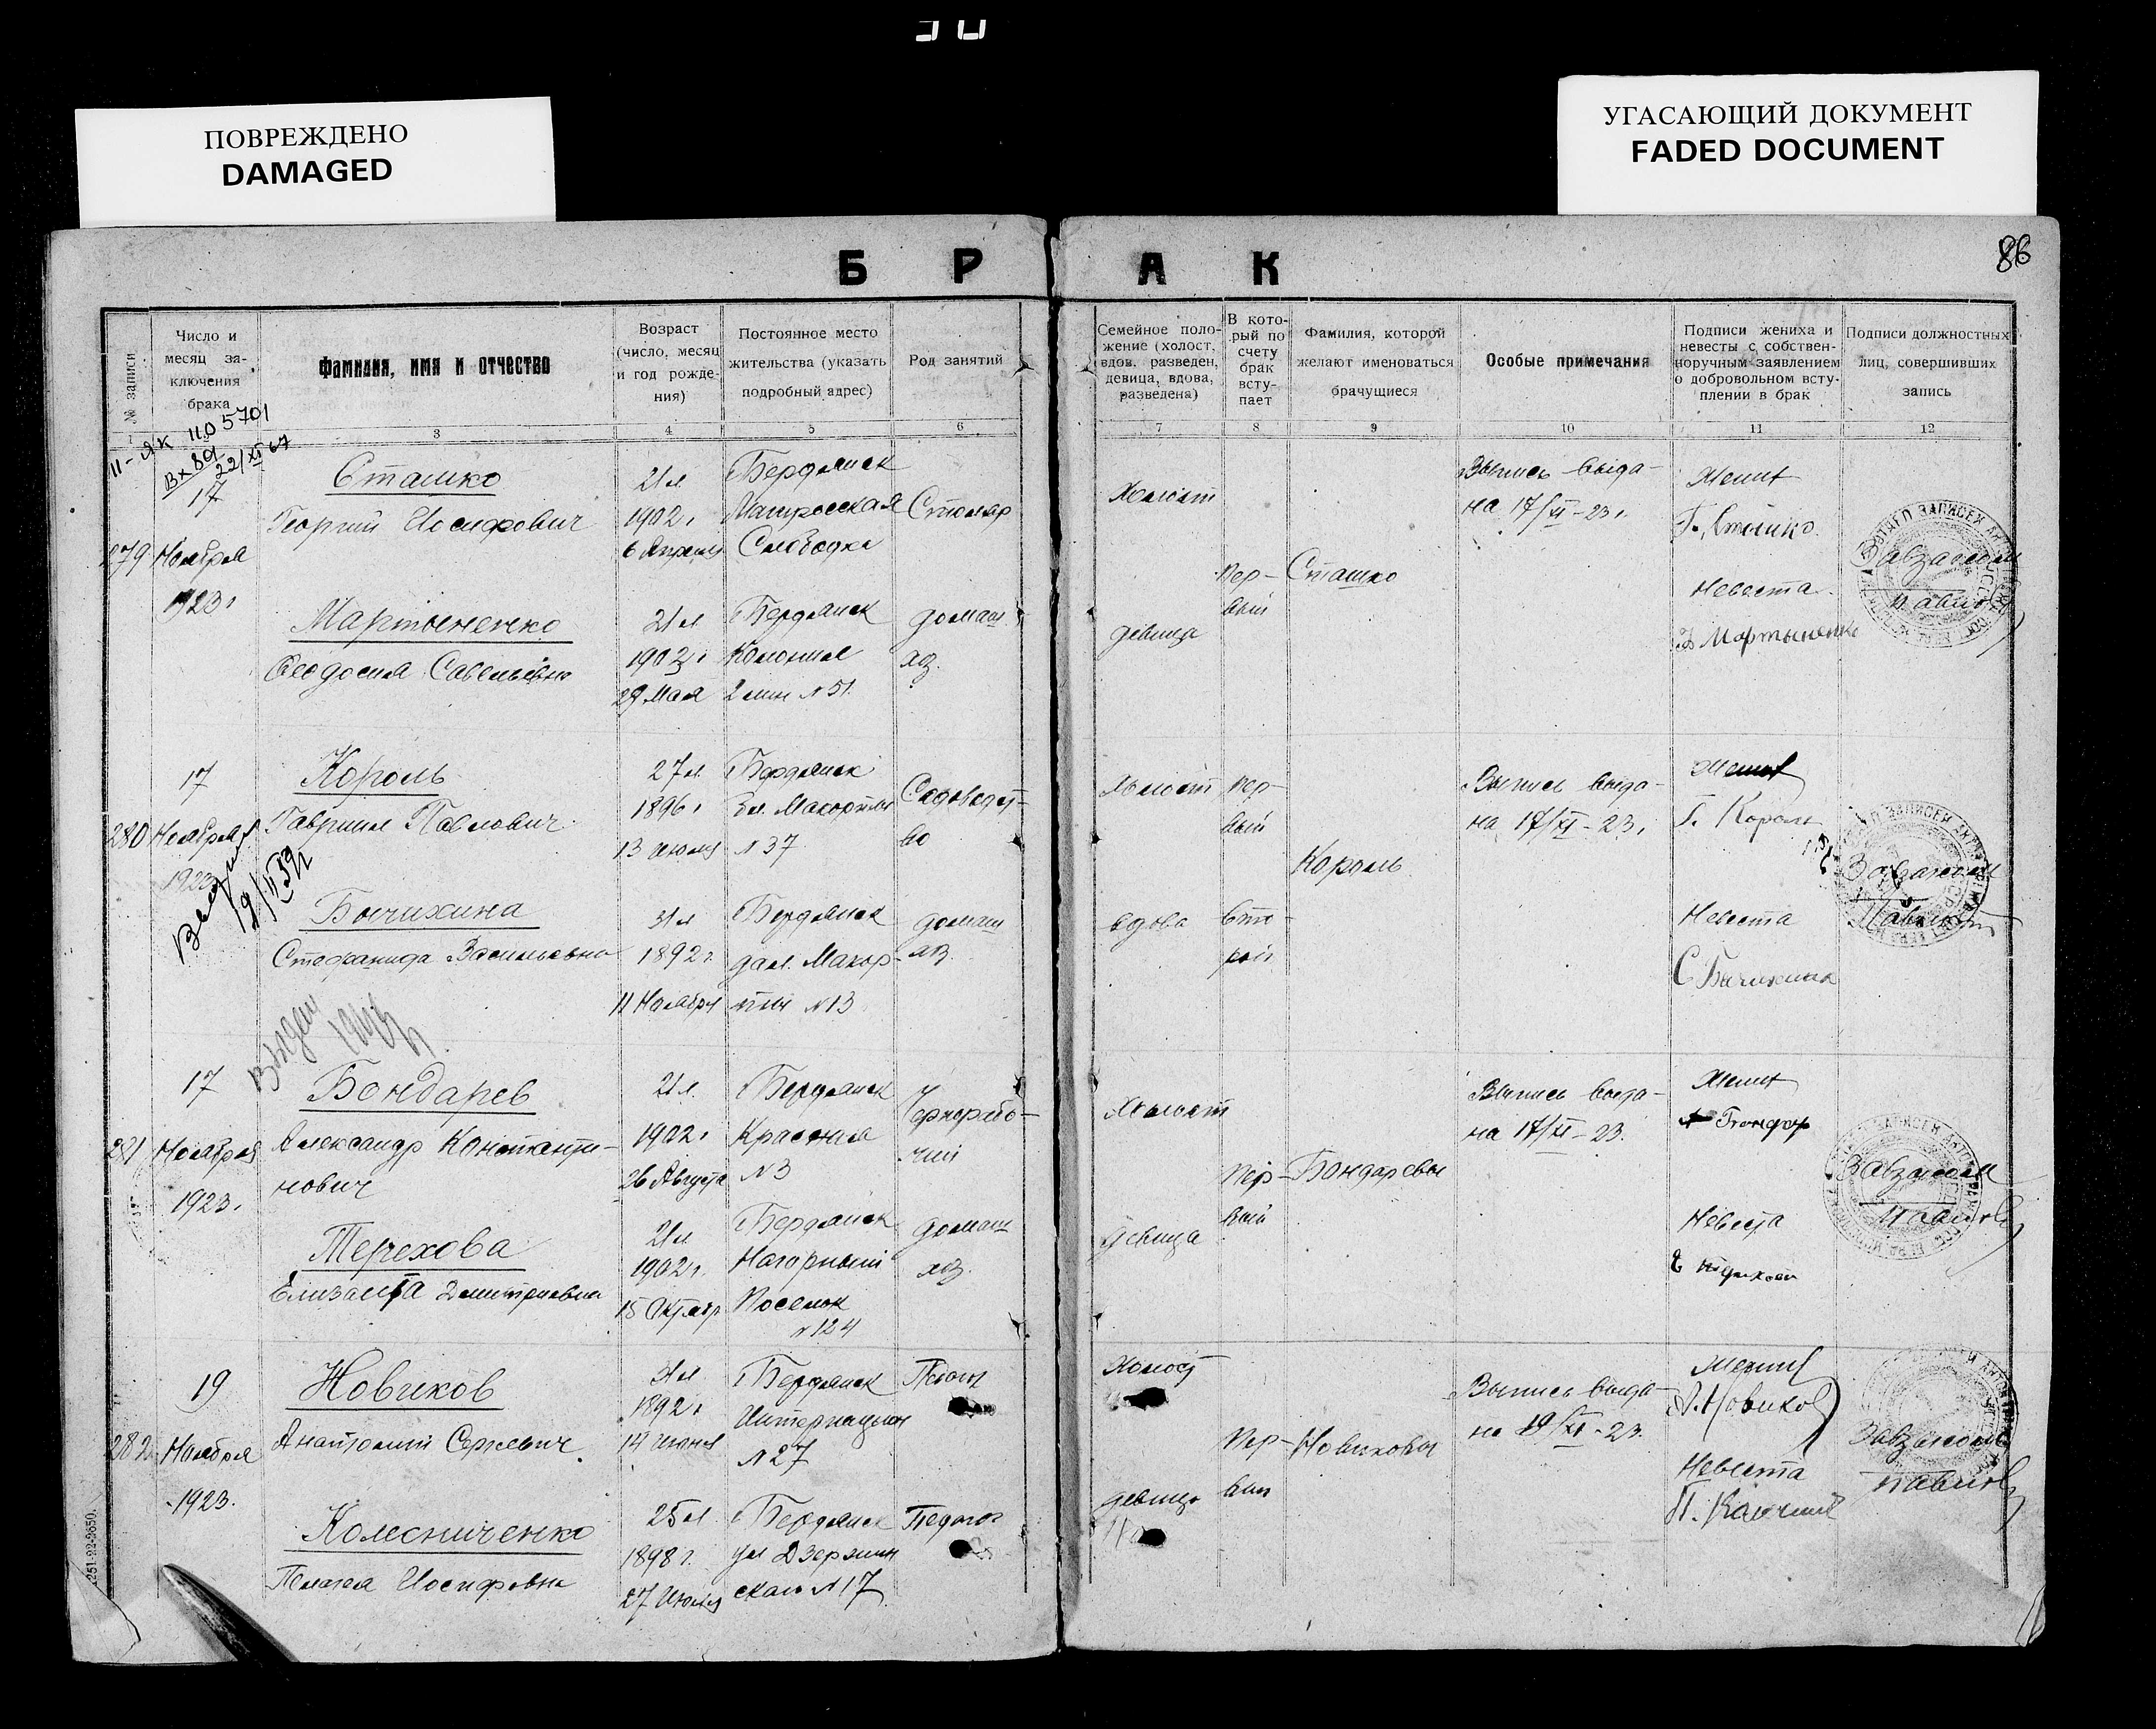 ПОВРЕЖДЕНО
DAMAGED
УГАСАЮЩИЙ ДОКУМЕНТ
FADED DOCUMENT
БРАК
86
№ записи
Число и
месяц за-
ключения
брака
Фамилия, имя и отчество
Возраст
(число, месяц
и год рожде-
ния)
Постоянное место
жительства (указать
подробный адрес)
Род занятий
Семейное поло-
жение (холост,
вдов, разведен,
девица, вдова,
разведена)
В кото-
рый по
счету
брак
всту-
пает
Фамилия, которой
желают именоваться
брачущиеся
Особые примечания
Подписи жениха и
невесты с собствен-
норучным заявлением
о добровольном всту-
плении в брак
Подписи должностных
лиц, совершивших
запись
3 4 5 6 7 8 9 10 11 12
II-ЯК 1105701
Вх 89
22/XI 67
279
17
Ноября
1923 г
Сташко
Георгий Иосифович
21 л.
1902 г
6 Апреля
Бердянск
Матросская
Слободка
Столяр
Холост
Пер-
вый
Сташко
Выпись выда-
на 17/XI-23 г.
Жених
Г. Сташко
Завзагсом
Павлов
Мартыненко
Феодосия Савельевна
21 л
1902 г
29 Мая
Бердянск
Колония
2 лин N 51.
домаш
хоз.
девица
Невеста
Ф Мартыненко
280
17
Ноября
1923
Король
Гавриил Павлович
27 л.
1896 г
13 Июля
Бердянск
N 37
Садоводст-
во
Холост
Пер-
вый
Король
Выпись выда-
на 17/XI-23 г
Жених
Г. Король
Завзагсом
Павлов
Бычихина
Стефанида Васильевна
31 л
1892 г.
11 Ноября
Бердянск
дал. Макор-
тии N 13
домаш
хоз.
вдова
вто-
рой
Невеста
С Бычихина
Выдан
281
17
Ноября
1923.
Бондарев
Александр Константи-
нович
21 л.
1902 г
26 Августа
Бердянск
Красная
N 3
Чернорабо-
чий
Холост
Пер-
вый
Бондаревы
Выпись выда-
на 17/XI-23.
Жених
А Бондар
Завзагсом
Павлов
Терехова
Елизавета Дмитриевна
21 л
1902 г.
15 Октябр
Бердянск
Нагорный
Поселок
N 124
домаш
хоз.
девица
Невеста
282
19
Ноября
1923.
Новиков
Анатолий Сергеевич
31 л
1892 г
14 Июня
Бердянск
Интернацион
N 27
Педагог
Холост
Пер-
вый
Новиковы
Выпись выда-
на 19/XI-23.
Жених
А. Новиков
Завзагсом
Павлов
Колесниченко
Пелагея Иосифовна
25 л.
1898 г.
27 Июля
Бердянск
ул Дзержин
ского N 17
Педагог
девица
Невеста
1251-22-2650.